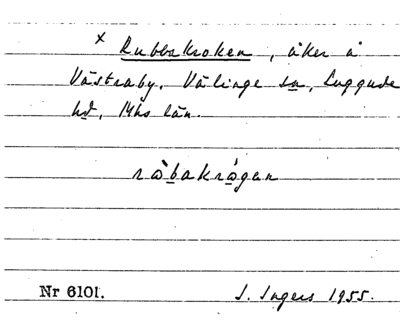 x Rubbakroken, åker å
Västraby, Välinge sn, Luggude
hd, Mhs län.
ràbakrå̀gan
Nr 6101.
I. Ingers 1955.